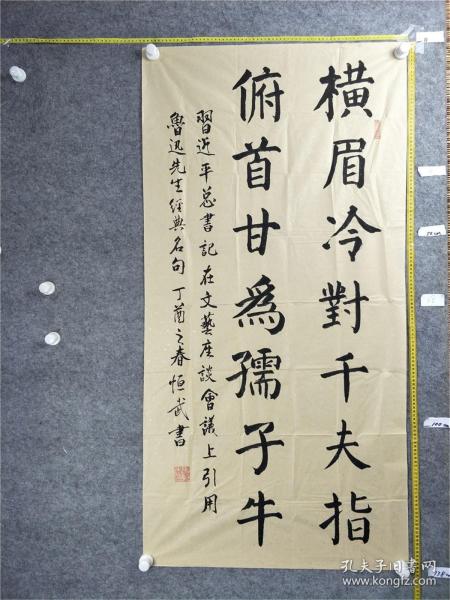 橫眉冷對千夫指
俯首甘爲孺子牛
習近平总書記在文藝座談會議上引用
魯迅先生經典名句 丁酉之春恒武書
孔夫子旧书网
www.kongfz.com